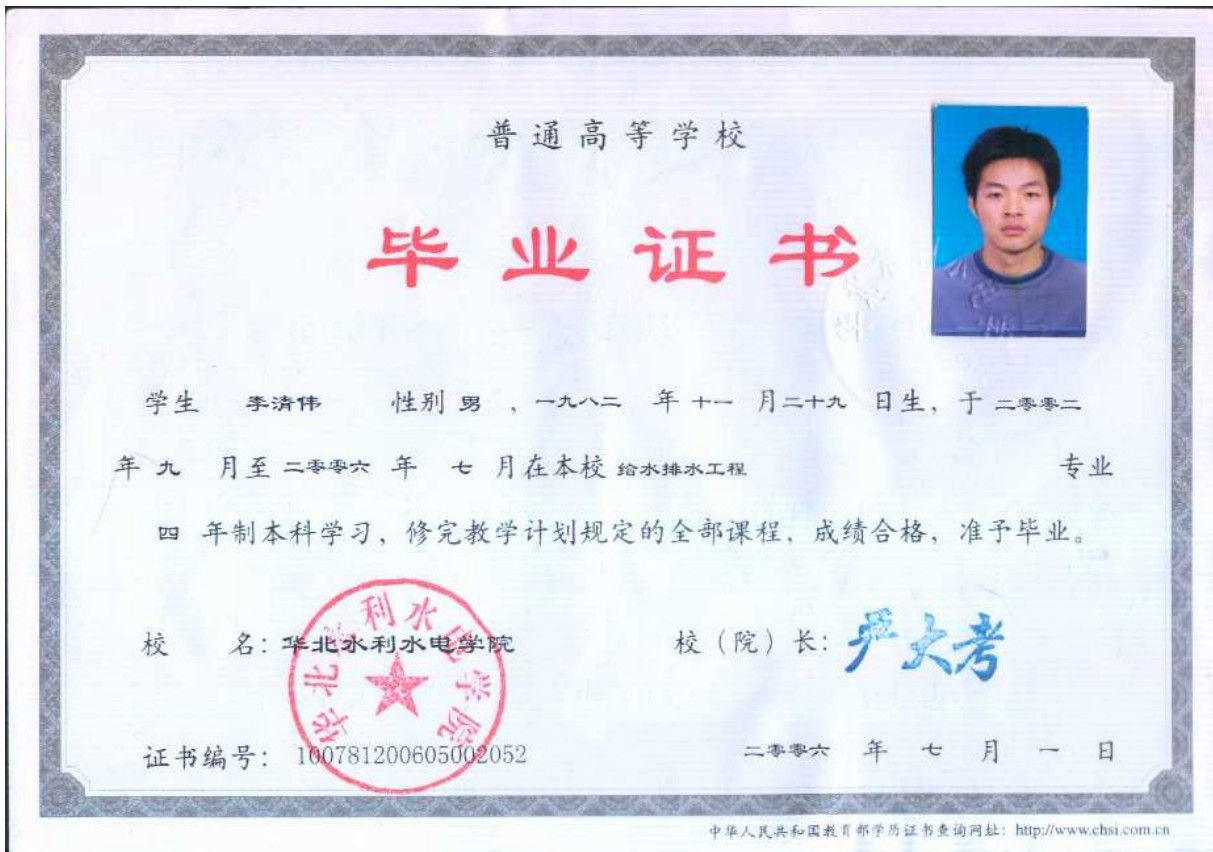 普通高等学校
毕业证书
学生 李清伟 性别 男 、一九八二 年 十一 月二十九 日生，于 二零零二
年 九 月至 二零零六 年 七 月在本校 给水排水工程 专业
四 年制本科学习，修完教学计划规定的全部课程，成绩合格，准予毕业。
校 名：华北水利水电学院 校（院）长：严大考
华北水利水电学院
证书编号：100781200605002052 二零零六 年 七 月 一 日
中华人民共和国教育部学历证书查询网址：http://www.chsi.com.cn